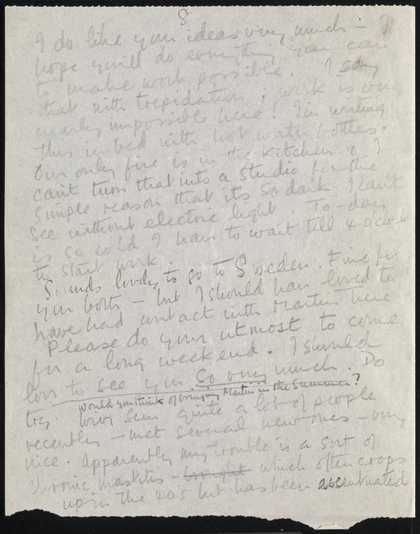 I do like your ideas very much —
hope you'll do everything you can
to make work possible. I say
that with trepidation; work is very
nearly impossible here. I'm writing
this in bed with hot water bottles.
Our only fire is in the kitchen & I
can't turn that into a studio for the
simple reason that it's so dark I can't
see without electric light. To-day
is so cold I have to wait till 4 o'clock
to start work.
Sounds lovely to go to Sweden. Fine for
you both — but I should have loved to
have had contact with Martin here
Please do your utmost to come
for a long weekend. I should
love to see you so very much. Do
try
would you think of bringing Martin in the summer?
have seen quite a lot of people
recently — met several new ones — very
nice. Apparently my trouble is a sort of
chronic mastitis — which often crops
up in the 20s but has been accentuated